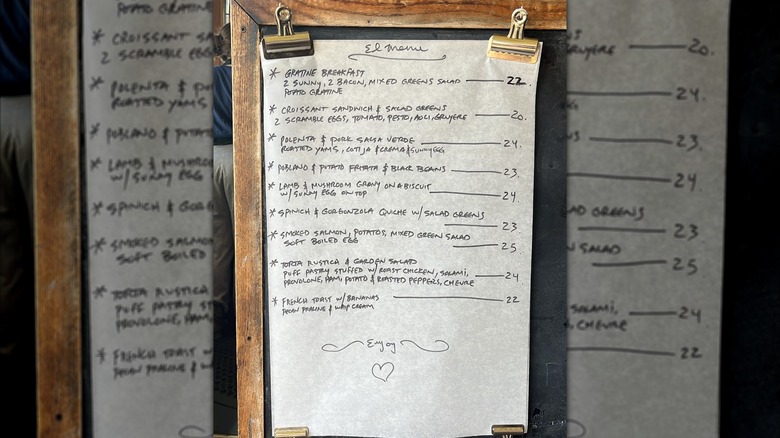 El Menu
* GRATINE BREAKFAST
2 SUNNY, 2 BACON, MIXED GREENS SALAD 22.
POTATO GRATINE
* CROISSANT SANDWICH & SALAD GREENS
2 SCRAMBLE EGGS, TOMATO, PESTO, AOLI, GRUYERE 20.
* POLENTA & PORK SALSA VERDE
ROASTED YAMS, COTIJA & CREMA & SUNNY EGG 24.
* POBLANO & POTATO FRITATA & BLACK BEANS 23.
* LAMB & MUSHROOM GRAVY ON A BISCUIT
W/ SUNNY EGG ON TOP 24
* SPINICH & GORGONZOLA QUICHE W/ SALAD GREENS
23
* SMOKED SALMON, POTATOS, MIXED GREEN SALAD
SOFT BOILED EGG 25
* TORTA RUSTICA & GARDEN SALAD
PUFF PASTRY STUFFED W/ ROAST CHICKEN, SALAMI, 24
PROVOLONE, HAM, POTATO & ROASTED PEPPERS, CHEVRE
* FRENCH TOAST W/ BANANAS 22
PECAN PRALINE & WHIP CREAM
Enjoy